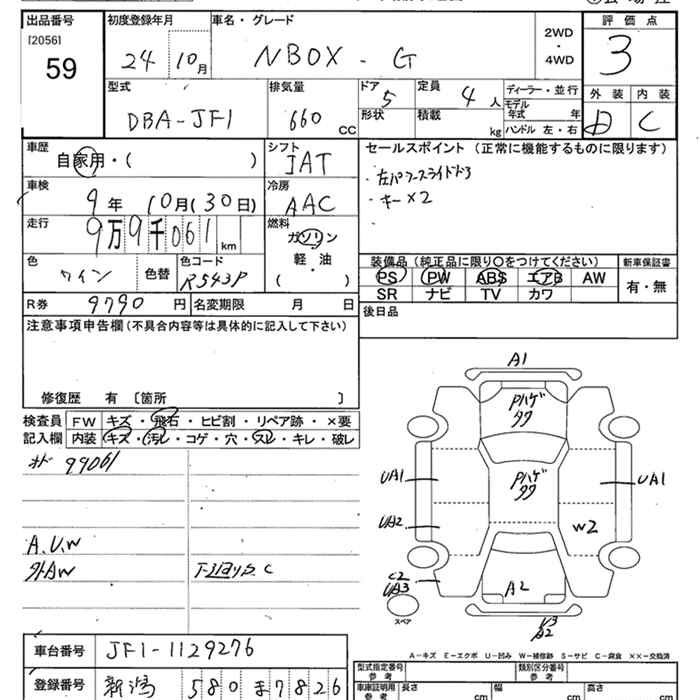 出品番号 初度登録年月 車名・グレード 評価点
[2056]
59
24 10月 NBOX - G 2WD・4WD 3
型式 排気量 ドア 定員 ディーラー・並行 外装 内装
DBA-JF1 660 CC 5 4人 モデル年式 年 D C
形状 積載 kg ハンドル 左・右
車歴 シフト セールスポイント(正常に機能するものに限ります)
自家用・( ) IAT
・左パワースライドドア
車検 冷房
9年 10月(30日) AAC ・キー×2
走行 燃料
9万9千061km ガソリン・軽油・( )
装備品(純正品に限り○をつけてください) 新車保証書
色 色替 色コード
ワイン R543P
PS PW ABS エアB AW 有・無
SR ナビ TV カワ
R券 9790円 名変期限 月 日 後日品
注意事項申告欄(不具合内容等は具体的に記入して下さい)
修復歴 有 〔箇所 〕
検査員 FW キズ・飛石・ヒビ割・リペア跡・×要
記入欄 内装 キズ・汚レ・コゲ・穴・スレ・キレ・破レ
99061
A.U.W
外AW
C
A1
Pハゲ
タワ
Pハゲ
タワ
UA1 UA1
UA2 W2
C2
UA3
スペア
A2
A2
A-キズ E-エクボ U-凹み W-補修跡 S-サビ C-腐食 ××-交換済
車台番号 JF1-1129276
登録番号 新潟 580 ま 7826
型式指定番号 参考 類別区分番号 参考
車庫証明用 参考 長さ cm 幅 cm 高さ cm